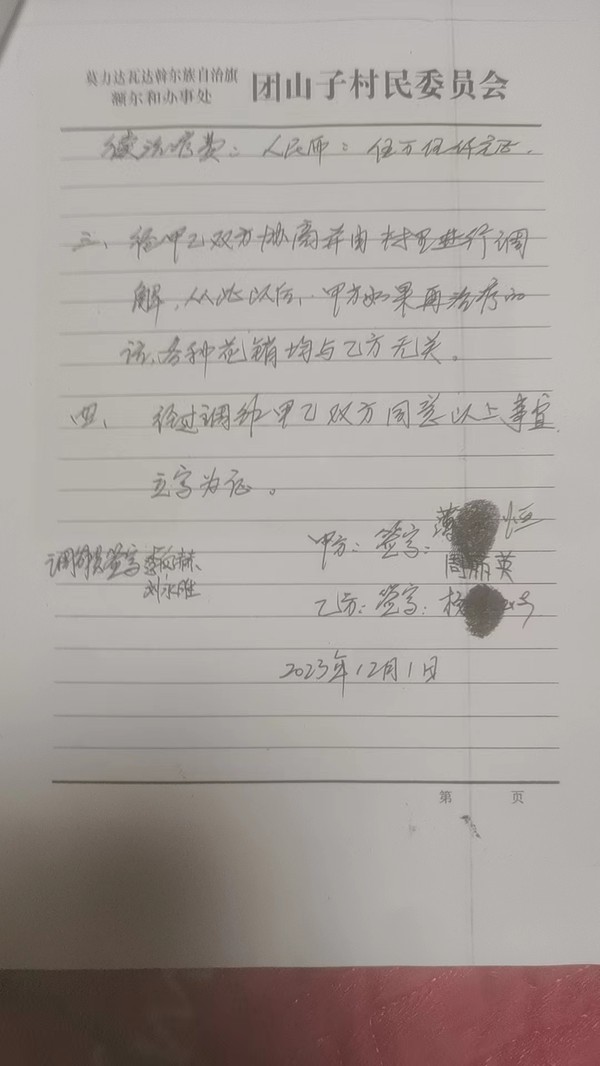 莫力达瓦达斡尔族自治旗
额尔和办事处
团山子村民委员会
续治疗费：人民币：伍万伍仟元正.
三、经甲乙双方协商并由村里进行调
解，从此以后，甲方如果再治疗的
话，各种花销均与乙方无关。
四、经过调解甲乙双方同意以上事宜
立字为证。
甲方：签字：薄 恒
周丽英
调解员签字
刘永胜
乙方：签字：杨
2023年12月1日
第 页